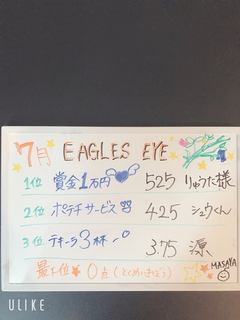 7月 EAGLES EYE
1位 賞金1万円 525 りゅうた様
2位 ポテチサービス 425 シュウくん
3位 テキーラ3杯 375 源
最下位 0点
MASAYA
ULIKE